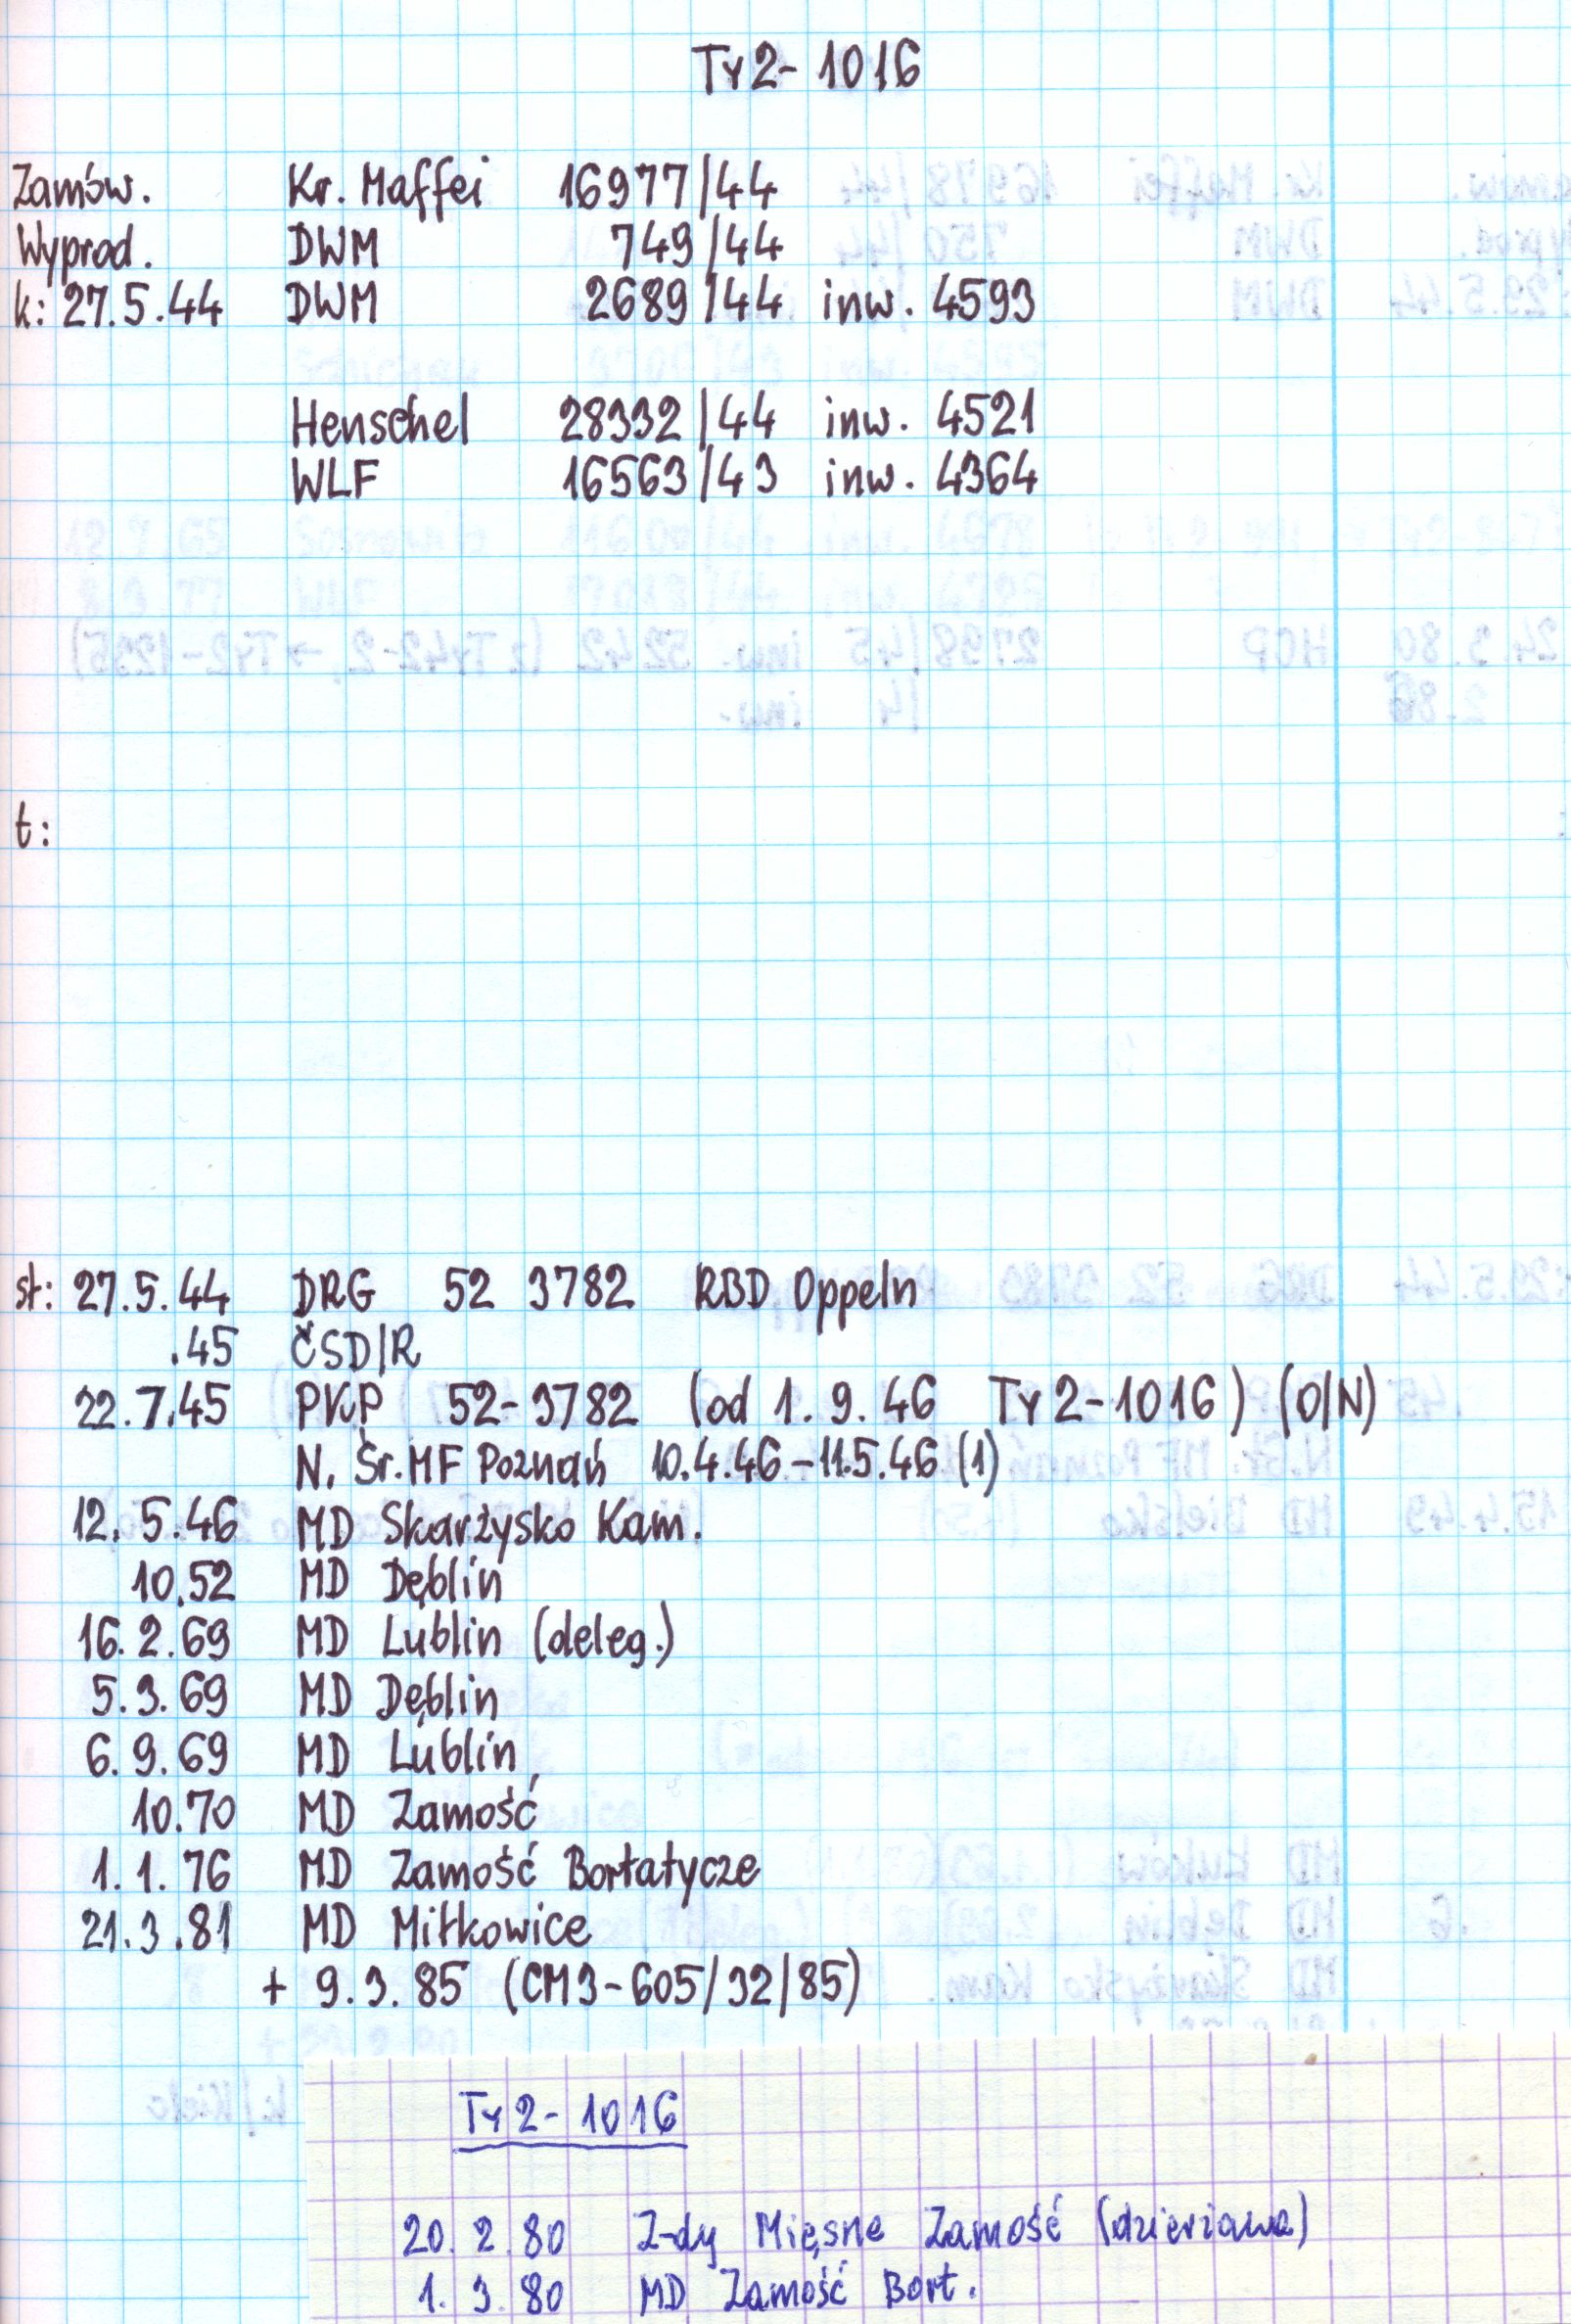 Ty2-1016
Zamów. Kr. Maffei 16977/44
Wyprod. DWM 749/44
k: 27.5.44 DWM 2689/44 inw. 4593
Henschel 28332/44 inw. 4521
WLF 16563/43 inw. 4364
t:
st: 27.5.44 DRG 52 3782 RBD Oppeln
.45 ČSD/R
22.7.45 PKP 52-3782 (od 1.9.46 Ty2-1016) (O/N)
N. Śr. MF Poznań 10.4.46-11.5.46 (1)
12.5.46 MD Skarżysko Kam.
10.52 MD Dęblin
16.2.69 MD Lublin (deleg.)
5.3.69 MD Dęblin
6.9.69 MD Lublin
10.70 MD Zamość
1.1.76 MD Zamość Bortatycze
21.3.81 MD Miłkowice
+ 9.3.85 (CM3-605/32/85)
Ty2-1016
20.2.80 Z-dy Mięsne Zamość (dzierżawa)
1.3.80 MD Zamość Bort.